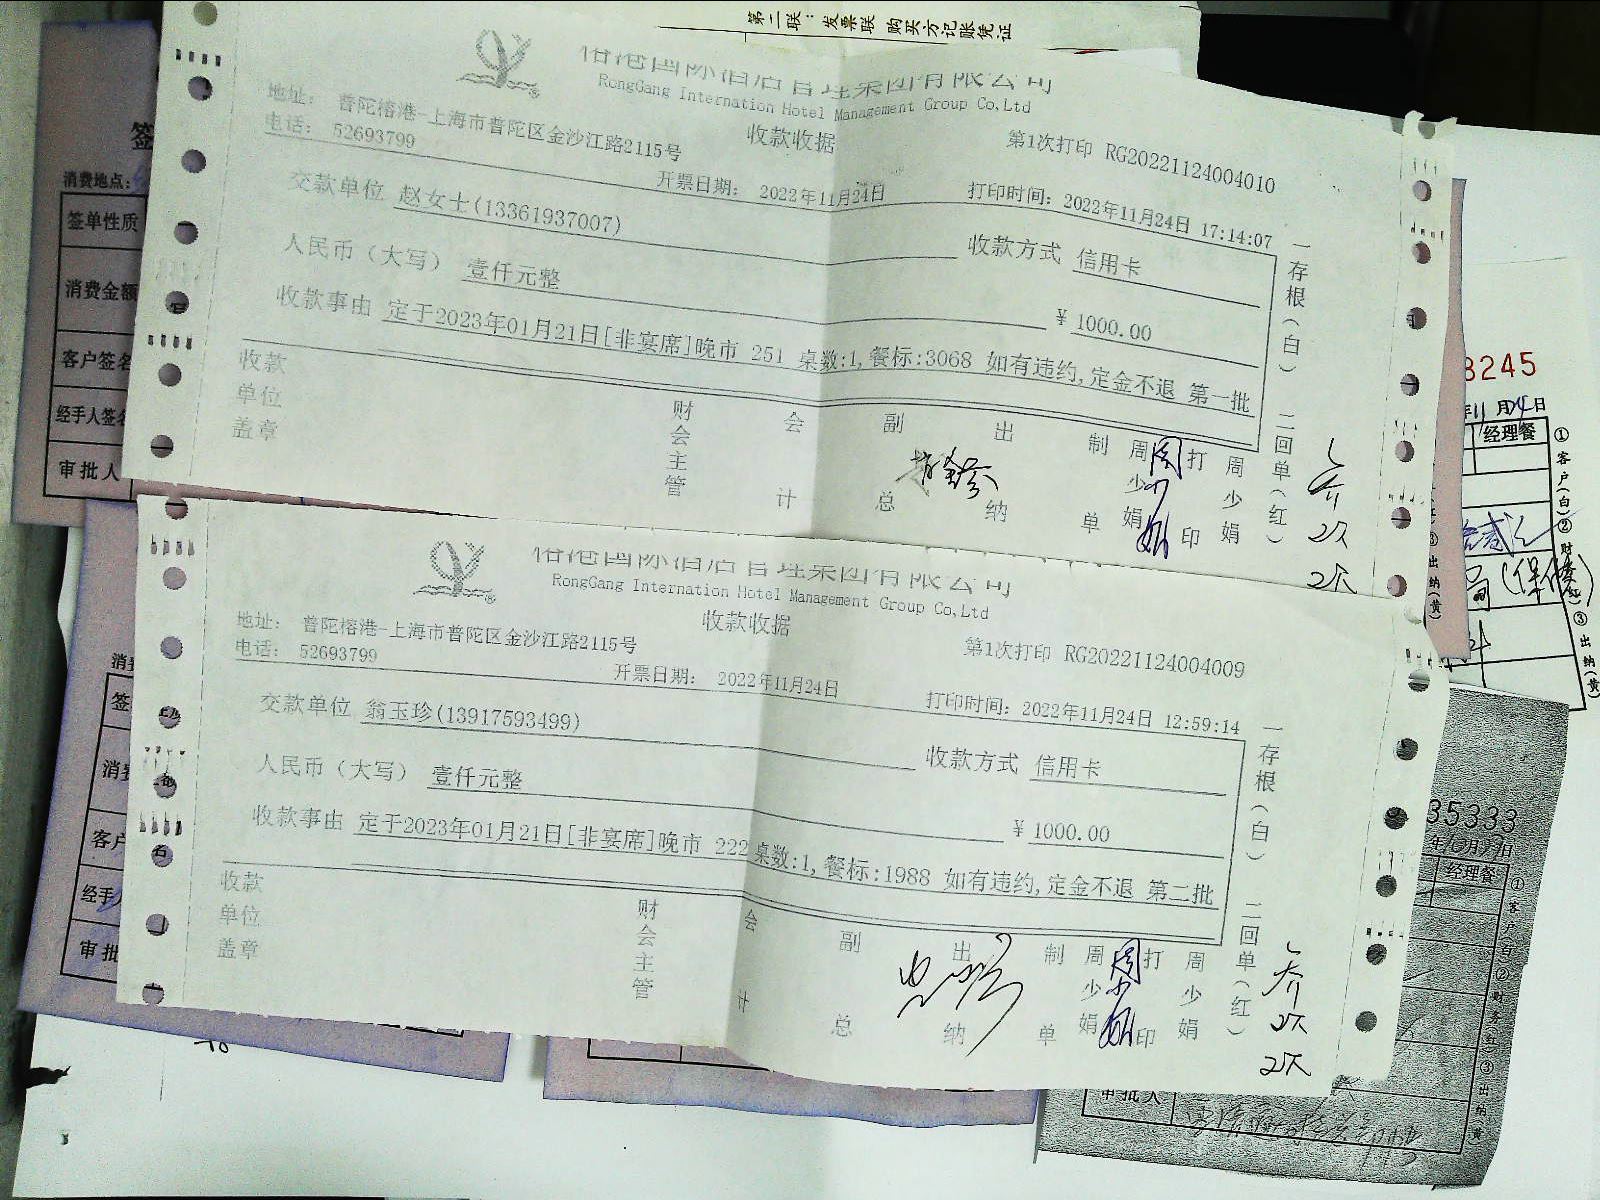 第二联：发票联 购买方记账凭证
榕港国际酒店管理集团有限公司
RongGang Internation Hotel Management Group Co,Ltd
地址： 普陀榕港-上海市普陀区金沙江路2115号
电话： 52693799
收款收据
第1次打印 RG20221124004010
开票日期： 2022年11月24日
打印时间：2022年11月24日 17:14:07
交款单位 赵女士(13361937007)
收款方式 信用卡
人民币（大写） 壹仟元整
¥ 1000.00
收款事由 定于2023年01月21日[非宴席]晚市 251 桌数:1,餐标:3068 如有违约,定金不退 第一批
收款单位盖章
财会主管
会计
副总
出纳
制单
周少娟
周少娟
打印
周少娟
一存根(白) 二回单(红)
2次
2次
榕港国际酒店管理集团有限公司
RongGang Internation Hotel Management Group Co,Ltd
地址： 普陀榕港-上海市普陀区金沙江路2115号
电话： 52693799
收款收据
第1次打印 RG20221124004009
开票日期： 2022年11月24日
打印时间：2022年11月24日 12:59:14
交款单位 翁玉珍(13917593499)
收款方式 信用卡
人民币（大写） 壹仟元整
¥ 1000.00
收款事由 定于2023年01月21日[非宴席]晚市 222 桌数:1,餐标:1988 如有违约,定金不退 第二批
收款单位盖章
财会主管
会计
副总
出纳
制单
周少娟
周少娟
打印
周少娟
一存根(白) 二回单(红)
2次
2次
签
消费地点：
签单性质
消费金额
客户签名
经手人签名
审批人
消费
签
消费
客户
经手
审批
3245
年11月24日
经理餐
①客户(白)②财务(红)③出纳(黄)
35333
经理餐
审批人